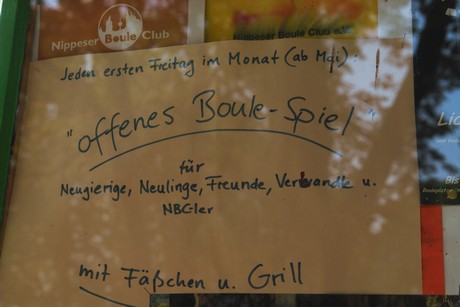 Nippeser Boule Club
Nippeser Boule Club e.V.
Jeden ersten Freitag im Monat (ab Mai):
"offenes Boule-Spiel"
für
Neugierige, Neulinge, Freunde, Verwandte u.
NBC-ler
mit Fäßchen u. Grill